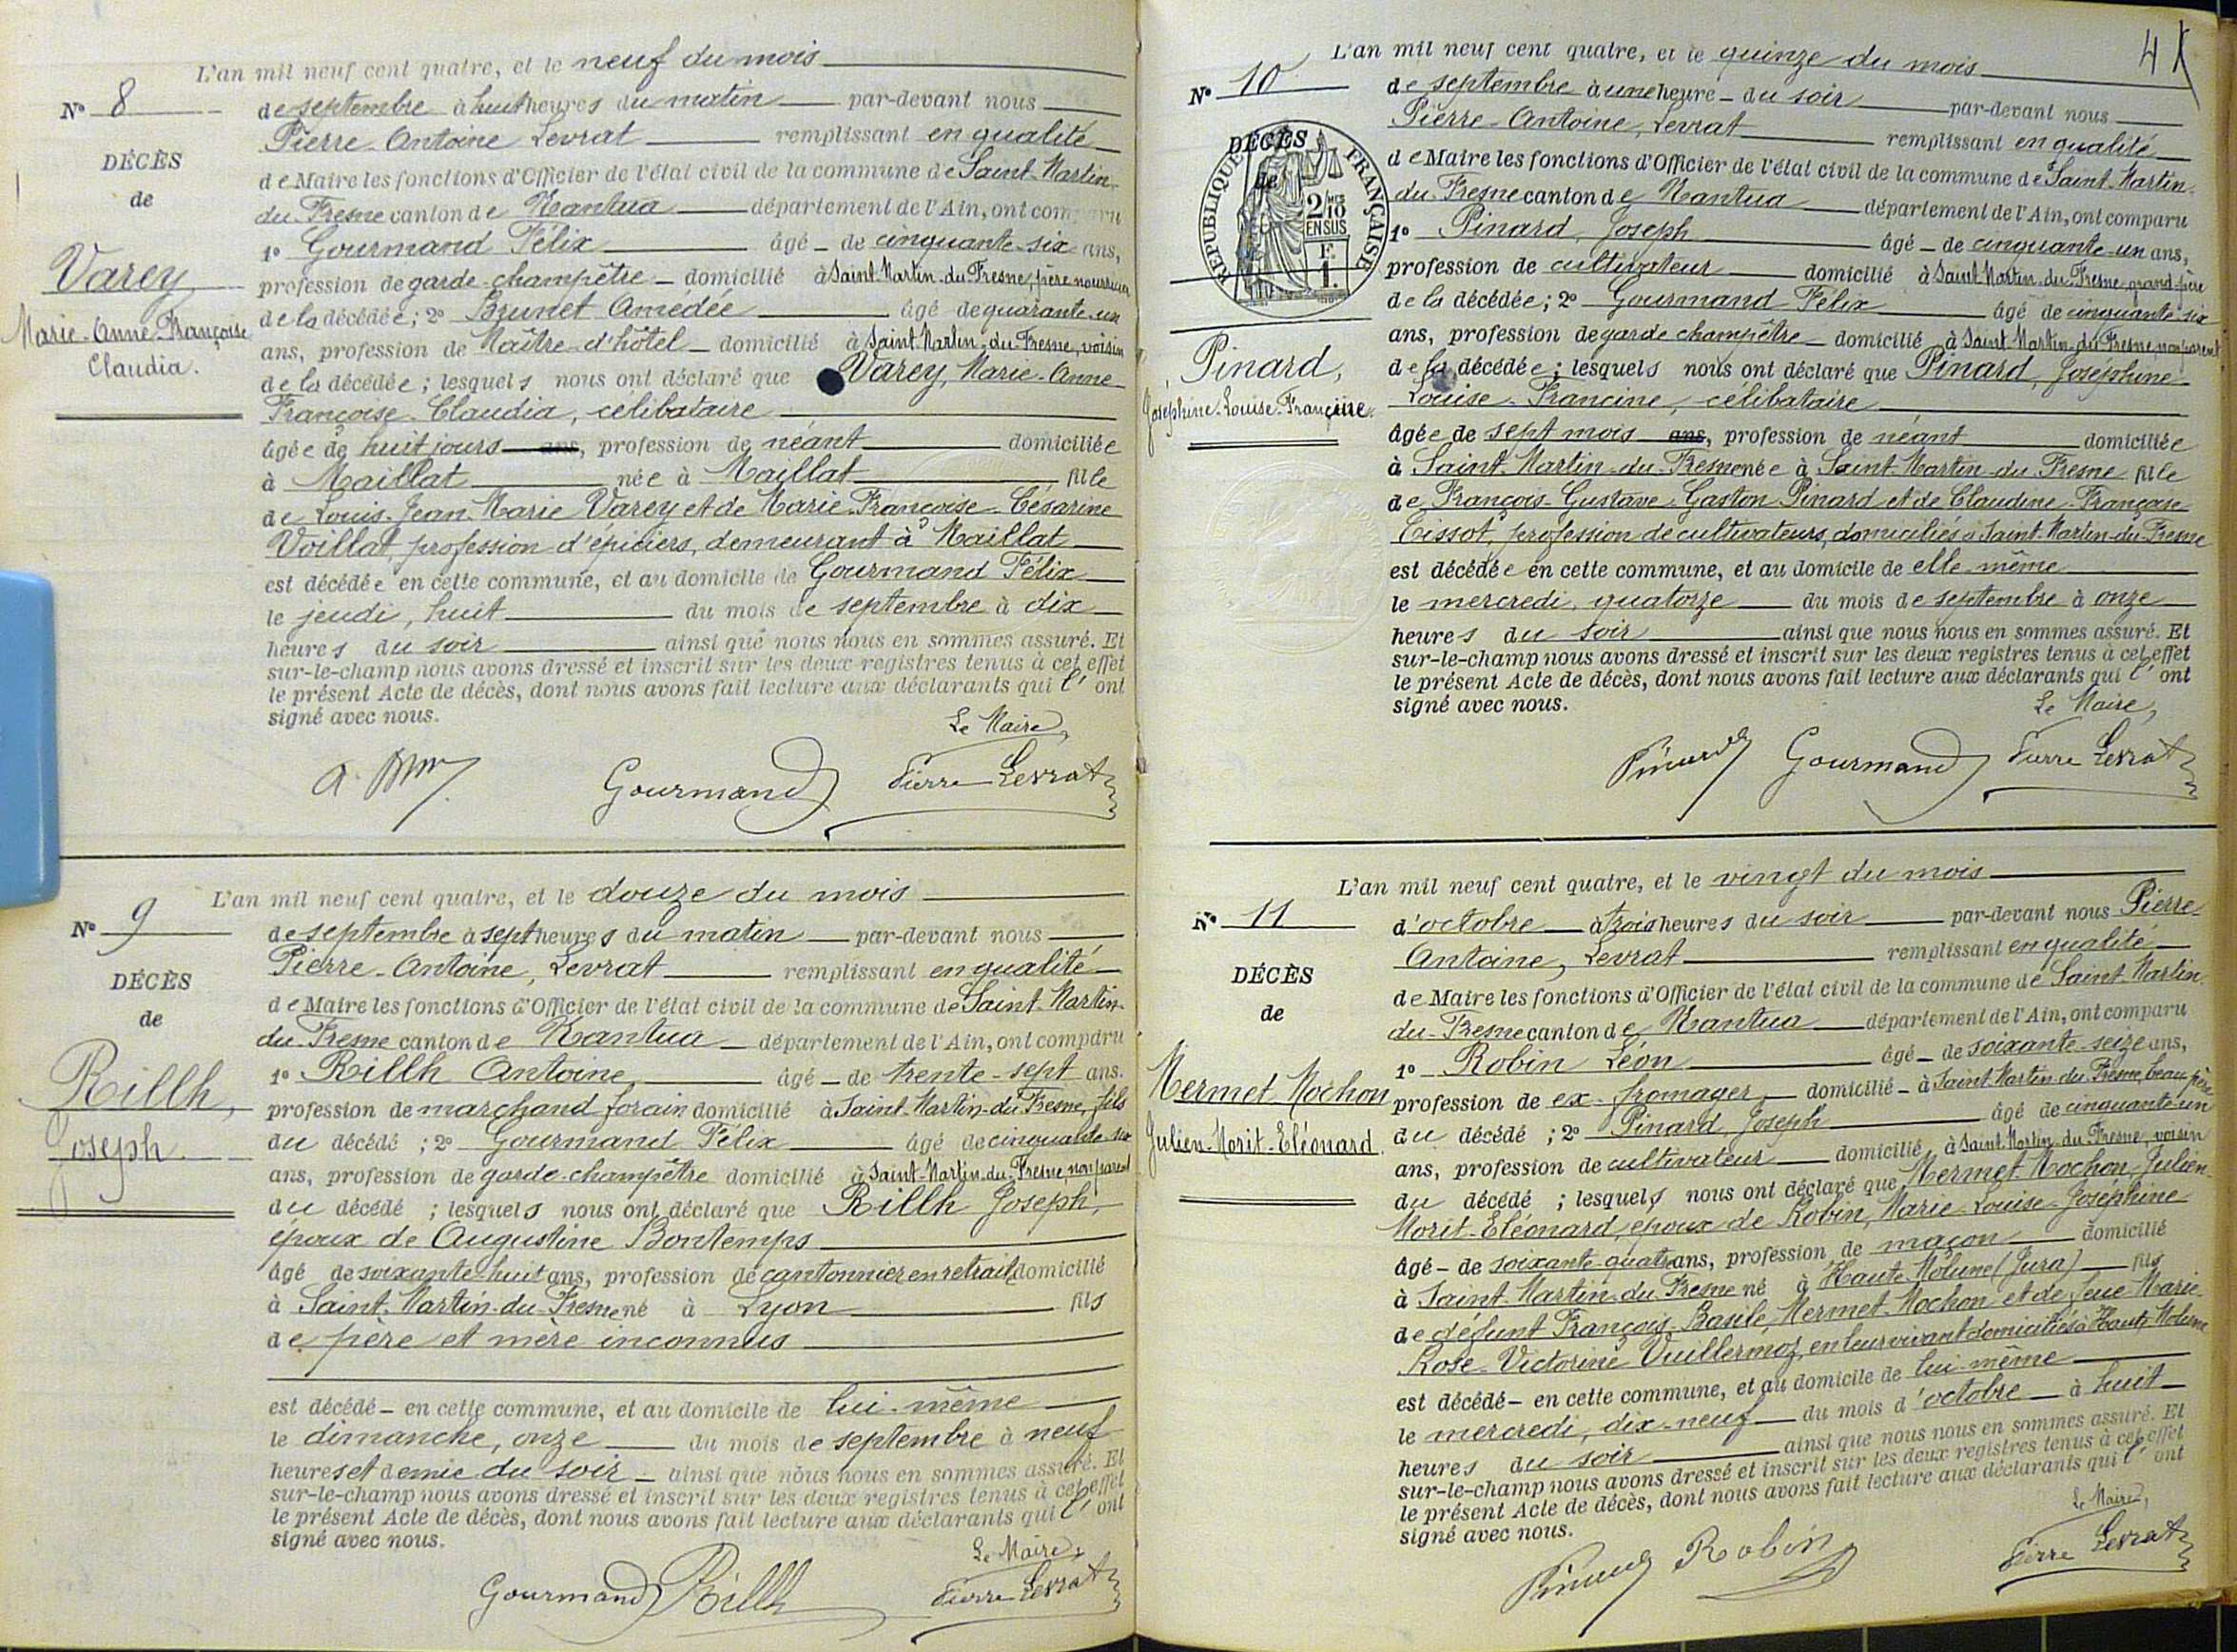 L'an mil neuf cent quatre, et le neuf du mois
N° 8
de septembre à huit heures du matin par-devant nous
Pierre-Antoine Levrat remplissant en qualité
DÉCÈS
de Maire les fonctions d'Officier de l'état civil de la commune de Saint-Martin-
de
du-Fresne canton de Nantua département de l'Ain, ont comparu
1° Gourmand Félix âgé de cinquante-six ans,
Varey
profession de garde-champêtre domicilié à Saint-Martin-du-Fresne, père nourricier
Marie-Anne-Françoise
de la décédée ; 2° Brunet Amedée âgé de quarante-un
Claudia.
ans, profession de Maître-d'hôtel domicilié à Saint-Martin-du-Fresne, voisin
de la décédée ; lesquels nous ont déclaré que Varey, Marie-Anne-
Françoise-Claudia, célibataire
âgée de huit jours ans, profession de néant domiciliée
à Maillat née à Maillat fille
de Louis-Jean-Marie Varey et de Marie-Françoise-Césarine
Voillat, profession d'épiciers, demeurant à Maillat
est décédée en cette commune, et au domicile de Gourmand Félix
le jeudi, huit du mois de septembre à dix
heures du soir ainsi que nous nous en sommes assuré. Et
sur-le-champ nous avons dressé et inscrit sur les deux registres tenus à cet effet
le présent Acte de décès, dont nous avons fait lecture aux déclarants qui l'ont
signé avec nous.
Le Maire,
Gourmand Pierre Levrat
L'an mil neuf cent quatre, et le douze du mois
N° 9
de septembre à sept heures du matin par-devant nous
Pierre-Antoine, Levrat remplissant en qualité
DÉCÈS
de Maire les fonctions d'Officier de l'état civil de la commune de Saint-Martin-
de
du-Fresne canton de Nantua département de l'Ain, ont comparu
1° Rillh Antoine âgé de trente-sept ans.
Rillh,
profession de marchand forain domicilié à Saint-Martin-du-Fresne, fils
Joseph.
du décédé ; 2° Gourmand Félix âgé de cinquante-six
ans, profession de garde-champêtre domicilié à Saint-Martin-du-Fresne, non parent
du décédé ; lesquels nous ont déclaré que Rillh Joseph,
époux de Augustine Bontemps
âgé de soixante-huit ans, profession de cantonnier en retrait domicilié
à Saint-Martin-du-Fresne né à Lyon fils
de père et mère inconnus
est décédé en cette commune, et au domicile de lui-même
le dimanche, onze du mois de septembre à neuf
heures et demie du soir ainsi que nous nous en sommes assuré. Et
sur-le-champ nous avons dressé et inscrit sur les deux registres tenus à cet effet
le présent Acte de décès, dont nous avons fait lecture aux déclarants qui l'ont
signé avec nous.
Le Maire,
Gourmand Rillh Pierre Levrat
L'an mil neuf cent quatre, et le quinze du mois
N° 10
de septembre à une heure du soir par-devant nous
Pierre-Antoine, Levrat remplissant en qualité
DÉCÈS
de
RÉPUBLIQUE FRANÇAISE
2/10 EN SUS
F. 1.
de Maire les fonctions d'Officier de l'état civil de la commune de Saint-Martin-
du-Fresne canton de Nantua département de l'Ain, ont comparu
1° Pinard, Joseph âgé de cinquante-un ans,
profession de cultivateur domicilié à Saint-Martin-du-Fresne, grand-père
de la décédée ; 2° Gourmand Félix âgé de cinquante-six
ans, profession de garde champêtre domicilié à Saint-Martin-du-Fresne, non parent
Pinard,
de la décédée ; lesquels nous ont déclaré que Pinard, Joséphine-
Joséphine-Louise-Francine.
Louise-Francine, célibataire
âgée de sept mois ans, profession de néant domiciliée
à Saint-Martin-du-Fresne née à Saint-Martin-du-Fresne fille
de François-Gustave-Gaston Pinard et de Claudine-Française
Tissot, profession de cultivateurs, domiciliés à Saint-Martin-du-Fresne
est décédée en cette commune, et au domicile de elle-même
le mercredi, quatorze du mois de septembre à onze
heures du soir ainsi que nous nous en sommes assuré. Et
sur-le-champ nous avons dressé et inscrit sur les deux registres tenus à cet effet
le présent Acte de décès, dont nous avons fait lecture aux déclarants qui l'ont
signé avec nous.
Le Maire,
Pinard Gourmand Pierre Levrat
L'an mil neuf cent quatre, et le vingt du mois
N° 11
d'octobre à trois heures du soir par-devant nous Pierre-
Antoine, Levrat remplissant en qualité
DÉCÈS
de Maire les fonctions d'Officier de l'état civil de la commune de Saint-Martin-
de
du-Fresne canton de Nantua département de l'Ain, ont comparu
1° Robin Léon âgé de soixante-seize ans,
Mermet-Mochon
profession de ex-fromager domicilié à Saint-Martin-du-Fresne, beau-père
Julien-Morit-Eléonard.
du décédé ; 2° Pinard, Joseph âgé de cinquante-un
ans, profession de cultivateur domicilié à Saint-Martin-du-Fresne, voisin
du décédé ; lesquels nous ont déclaré que Mermet-Mochon, Julien-
Morit-Eléonard, époux de Robin, Marie-Louise-Joséphine
âgé de soixante-quatre ans, profession de maçon domicilié
à Saint-Martin-du-Fresne né à Haute-Molune (Jura) fils
de défunt François-Basile Mermet-Mochon et de feue Marie-
Rose-Victorine Vuillermoz, en leur vivant domiciliés à Haute-Molune
est décédé en cette commune, et au domicile de lui-même
le mercredi, dix-neuf du mois d'octobre à huit
heures du soir ainsi que nous nous en sommes assuré. Et
sur-le-champ nous avons dressé et inscrit sur les deux registres tenus à cet effet
le présent Acte de décès, dont nous avons fait lecture aux déclarants qui l'ont
signé avec nous.
Le Maire,
Pinard Robin Pierre Levrat